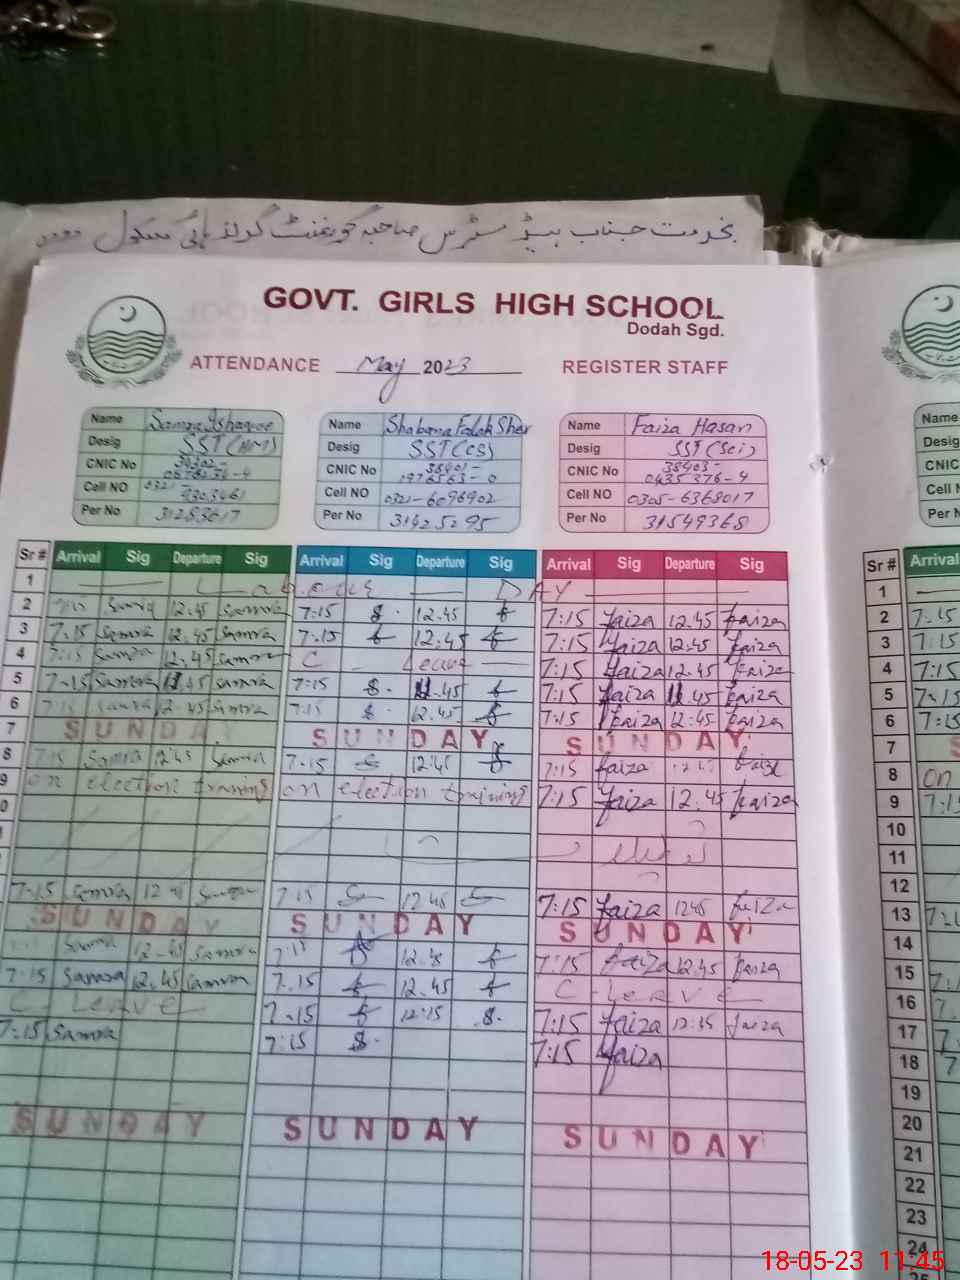 بخدمت جناب ہیڈ مسٹرس صاحبہ گورنمنٹ گرلز ہائی سکول
GOVT. GIRLS HIGH SCHOOL
Dodah Sgd.
ATTENDANCE May 2023 REGISTER STAFF
Name Samra Ishaque Name Shabana Falak Sher Name Faiza Hasan Name
Desig SST Desig SST (CS) Desig SST (Sci) Desig
CNIC No CNIC No 38401- CNIC No 38403- CNIC
1976563-0 0435376-4
Cell NO 0321- Cell NO 0321-6096902 Cell NO 0305-6368017 Cell
9303461
Per No 31283617 Per No 31425295 Per No 31549368 Per
Sr # Arrival Sig Departure Sig Arrival Sig Departure Sig Arrival Sig Departure Sig Sr # Arrival
1 DAY 1
2 7:15 Samra 12.45 Samra 7:15 12.45 7:15 Faiza 12.45 Faiza 2 7.15
3 7.15 Samra 12.45 Samra 7.15 12.45 7:15 Faiza 12.45 Faiza 3 7:15
4 7:15 Samra 12.45 Samra C Leave 7:15 Faiza 12.45 Faiza 4 7:15
5 7.15 Samra 11.45 Samra 7:15 11.45 7:15 Faiza 11.45 Faiza 5 7.15
6 7:15 Samra 12.45 Samra 7:15 12.45 7:15 Faiza 12:45 Faiza 6 7:15
7 SUNDAY SUNDAY SUNDAY 7 S
8 7:15 Samra 12:45 Samra 7.15 12:45 7:15 Faiza Faiza 8 on
9 on election training on election training 7:15 Faiza 12.45 Faiza 9 7:1
0 10
11
7.15 Samra 12 45 Samra 7.15 12.45 7:15 Faiza 12:45 Faiza 12
SUNDAY SUNDAY SUNDAY 13
Samra 12.45 Samra 7:15 12.45 7:15 Faiza 12.45 Faiza 14
7:15 Samra 12.45 Samra 7.15 12.45 C-Leave 15
C Leave 7.15 12:15 7:15 Faiza Faiza 16
7:15 Samra 7:15 7:15 Faiza 17
18
19
SUNDAY SUNDAY SUNDAY 20
21
22
23
24
25
18-05-23 11:45